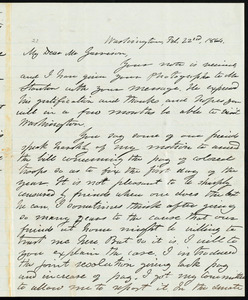 Washington, Feb 22nd, 1864.
My Dear Mr Garrison,
Your note is received
and I have given your Photographs to Mr
with your message. He expressed
his gratification and thanks and hopes you
will in a few months be able to visit
Washington.
I see some of our friends
speak harshly of my motion to amend
the bill concerning the pay of colored
troops so as to fix the first day of the
year. It is not pleasant to be sharply
censured by friends when one does the best
he can. I sometimes think after giving
so many years to the cause that our
friends at home might be willing to
trust me here. But so it is. I will to
you explain the case. I introduced
the joint resolution giving back pay
and increase of pay. I got my committee
to allow me to report it in the Senate